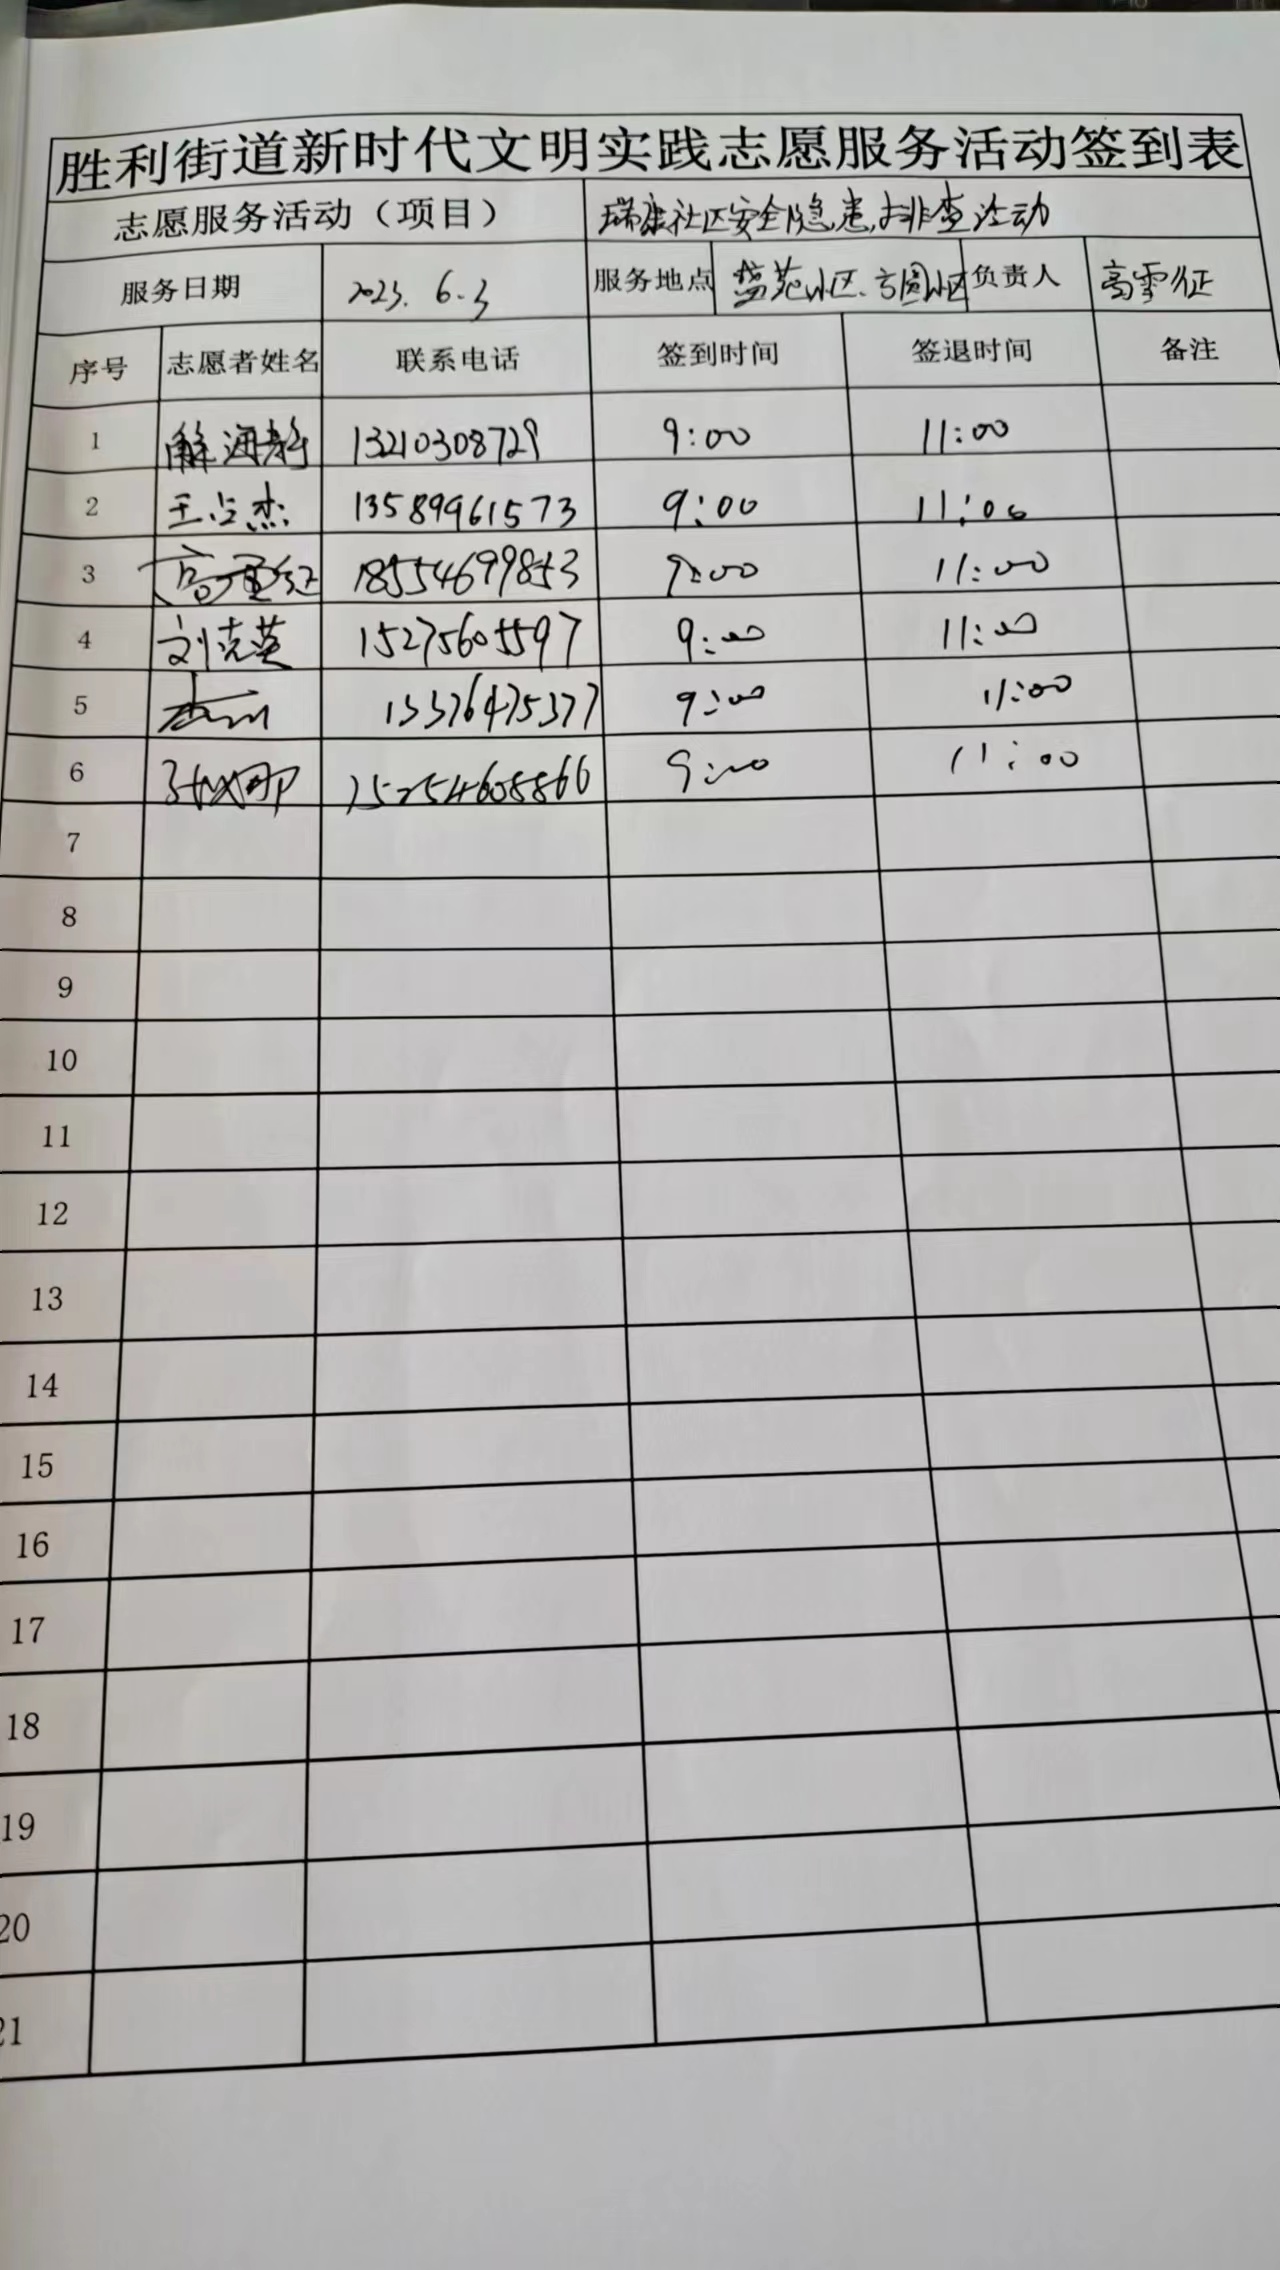 胜利街道新时代文明实践志愿服务活动签到表
志愿服务活动（项目） 瑞康社区安全隐患排查活动
服务日期 2023. 6.3 服务地点 小区、方圆小区 负责人 高雪征
序号 志愿者姓名 联系电话 签到时间 签退时间 备注
1 解海静 13210308729 9:00 11:00
2 王占杰 13589961573 9:00 11:00
3 18554699853 9:00 11:00
4 刘克英 15275605597 9:00 11:00
5 13376475377 9:00 11:00
6 15254608866 9:00 11:00
7
8
9
10
11
12
13
14
15
16
17
18
19
20
21